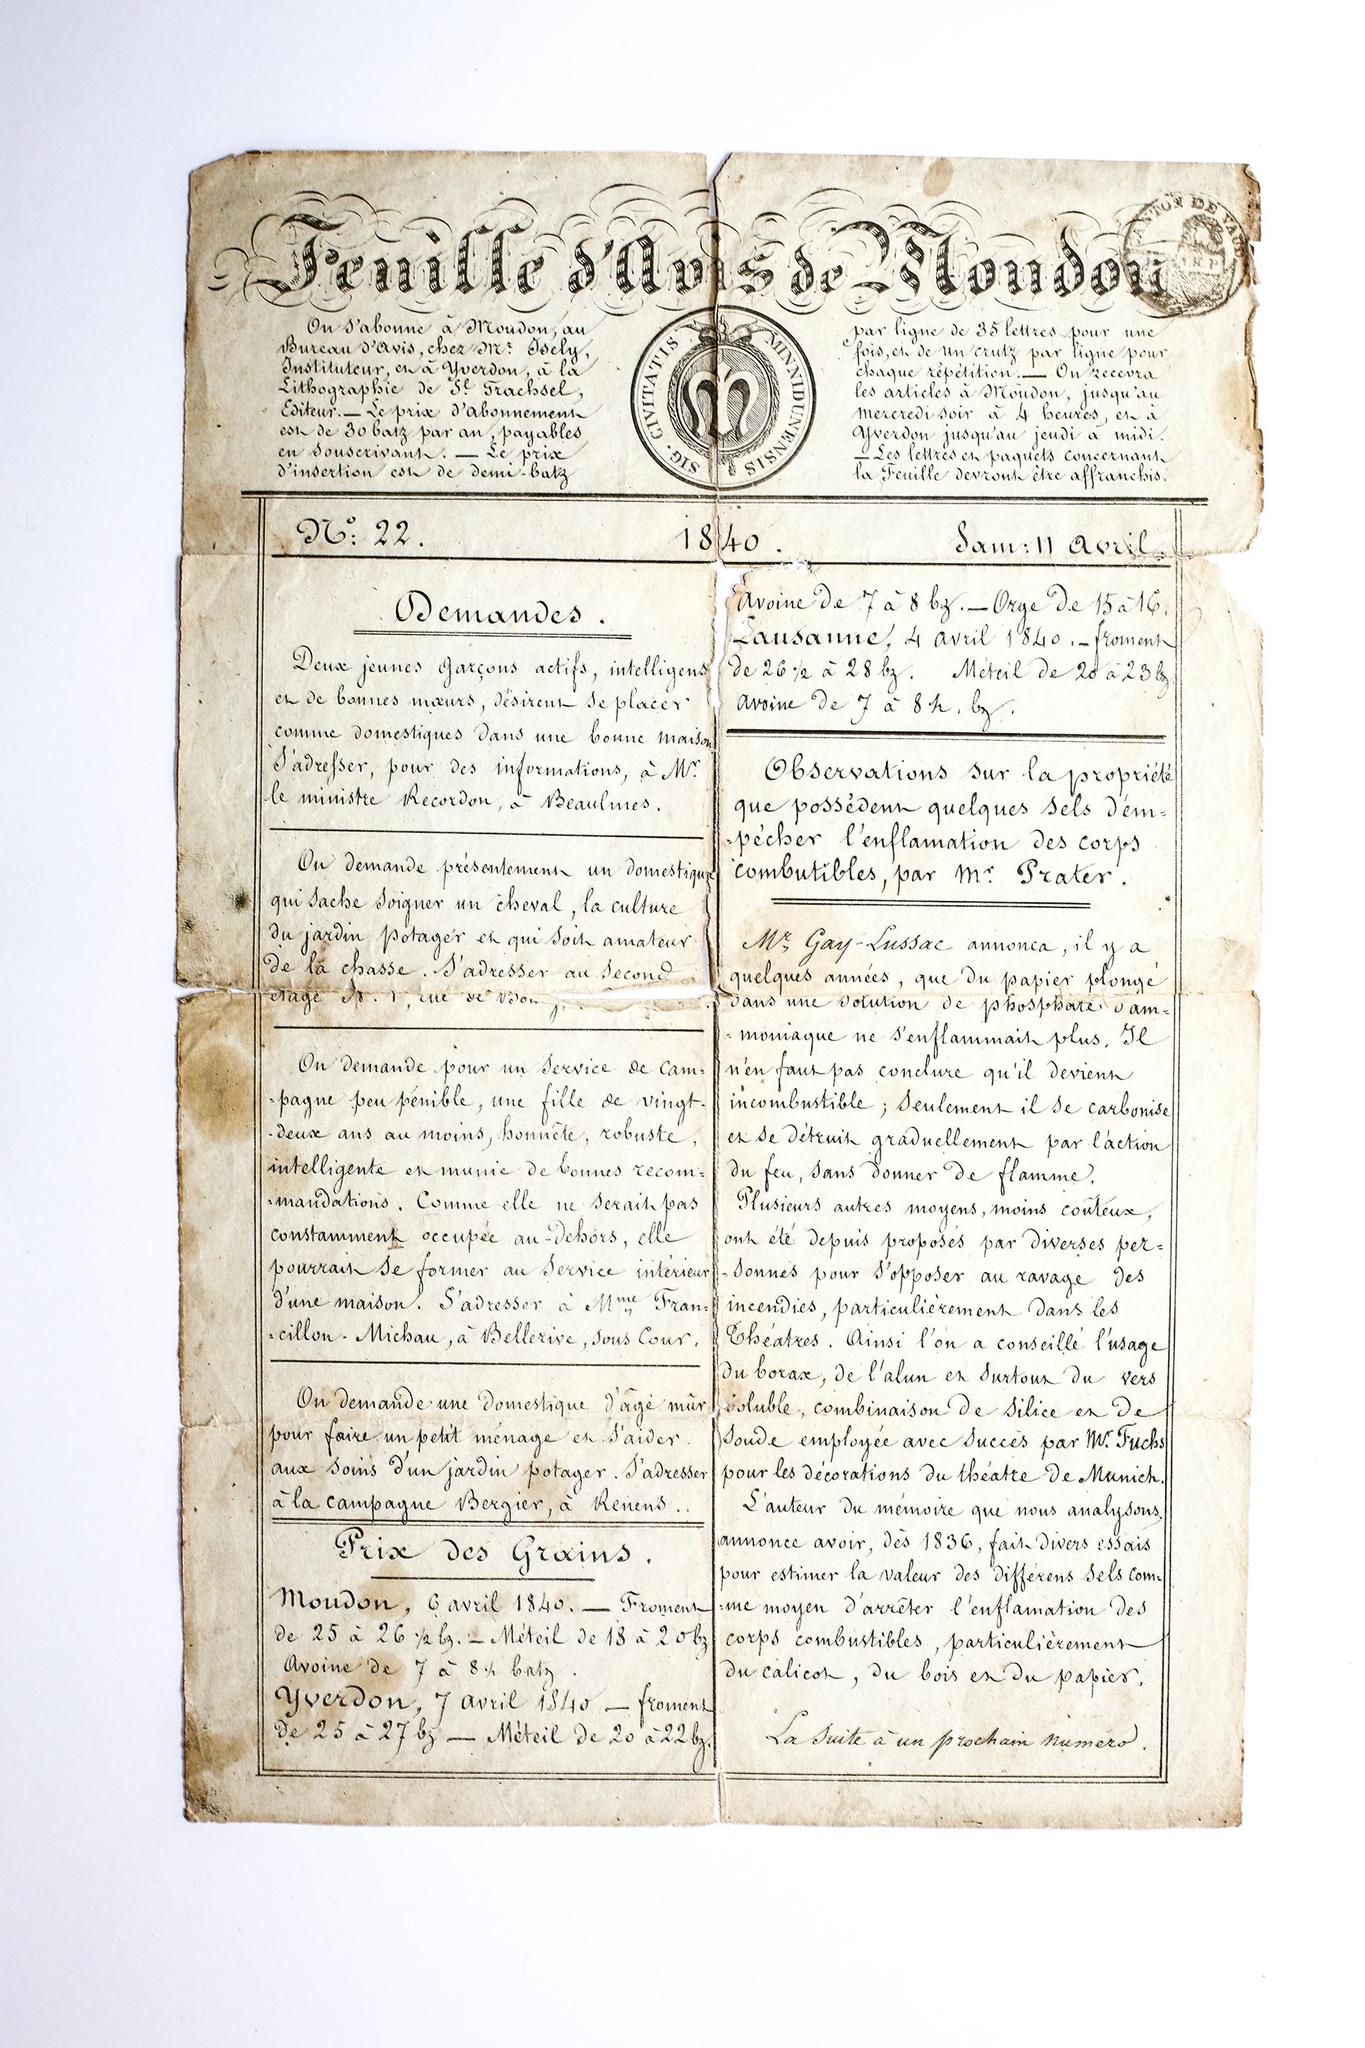 Feuille d'Avis de Moudon
CANTON DE VAUD
On s'abonne à Moudon, au
Bureau d'Avis, chez Mr. Isely,
Instituteur, et à Yverdon, à la
Lithographie de Sl. Trachsel,
Editeur. — Le prix d'abonnement
est de 30 batz par an, payables
en souscrivant. — Le prix
d'insertion est de demi-batz
SIG. CIVITATIS MINNIDUNENSIS
par ligne de 35 lettres pour une
fois, et de un crutz par ligne pour
chaque répétition. — On recevra
les articles à Moudon, jusqu'au
mercredi soir à 4 heures, et à
Yverdon jusqu'au jeudi à midi.
— Les lettres et paquets concernant
la Feuille devront être affranchis.
No: 22. 1840. Sam: 11 Avril.
Demandes.
Deux jeunes Garçons actifs, intelligens
et de bonnes mœurs, désirent se placer
comme domestiques dans une bonne maison
S'adresser, pour des informations, à Mr.
le ministre Recordon, à Beaulmes.
On demande présentement un domestique
qui sache soigner un cheval, la culture
du jardin potager et qui soit amateur
de la chasse. S'adresser au second
étage N. 1, rue de
On demande pour un service de cam=
=pagne peu pénible, une fille de vingt-
-deux ans au moins, honnête, robuste,
intelligente et munie de bonnes recom=
=mandations. Comme elle ne serait pas
constamment occupée au-dehors, elle
pourrait se former au service intérieur
d'une maison. S'adresser à Mme Fran=
=cillon-Michau, à Bellerive, sous Cour.
On demande une domestique d'âge mûr
pour faire un petit ménage et s'aider
aux soins d'un jardin potager. S'adresser
à la campagne Bergier, à Renens..
Prix des Grains.
Moudon, 6 avril 1840. — Froment
de 25 à 26 1/2 bz. — Méteil de 18 à 20 bz
Avoine de 7 à 8 1/2 batz.
Yverdon, 7 avril 1840 — froment
de 25 à 27 bz — Méteil de 20 à 22 bz.
Avoine de 7 à 8 bz. — Orge de 15 à 16.
Lausanne, 4 avril 1840. — froment
de 26 1/2 à 28 bz. Méteil de 20 à 23 bz
Avoine de 7 à 8 1/2. bz.
Observations sur la propriété
que possèdent quelques sels d'em=
=pêcher l'enflamation des corps
combutibles, par Mr. Prater.
Mr. Gay-Lussac annonca, il y a
quelques années, que du papier plongé
dans une solution de phosphate d'am=
=moniaque ne s'enflammait plus. Il
n'en faut pas conclure qu'il devient
incombustible; seulement il se carbonise
et se détruit graduellement par l'action
du feu, sans donner de flamme.
Plusieurs autres moyens, moins coûteux,
ont été depuis proposés par diverses per=
=sonnes pour s'opposer au ravage des
incendies, particulièrement dans les
Théatres. Ainsi l'on a conseillé l'usage
du borax, de l'alun et surtout du vers
soluble, combinaison de silice et de
soude employée avec succès par Mr. Fuchs
pour les décorations du théatre de Munich.
L'auteur du mémoire que nous analysons,
annonce avoir, dès 1836, fait divers essais
pour estimer la valeur des différens sels com=
=me moyen d'arrêter l'enflamation des
corps combustibles, particulièrement
du calicot, du bois et du papier.
La suite à un prochain numero.